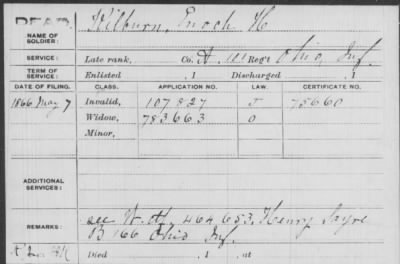 DEAF.
NAME OF SOLDIER: Wilburn, Enoch H
SERVICE: Late rank, Co. A 121 Reg't Ohio Inf.
TERM OF SERVICE: Enlisted , 1 Discharged , 1
DATE OF FILING. CLASS. APPLICATION NO. LAW. CERTIFICATE NO.
1866 May 7 Invalid, 107827 J 75660
Widow, 783663 O
Minor,
ADDITIONAL SERVICES:
REMARKS: see W. of 464653, Henry Sayre
B 166 Ohio Inf.
Died , 1 , at